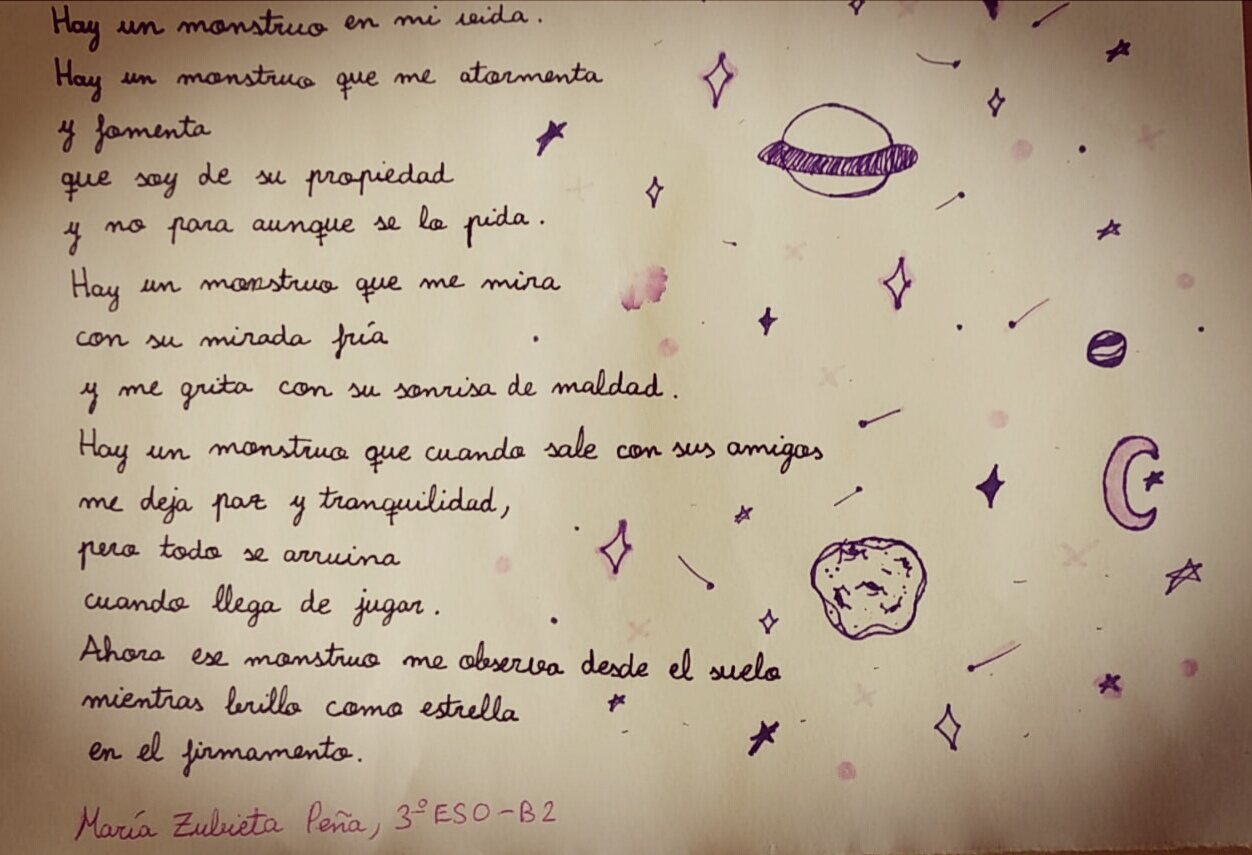 Hay un monstruo en mi vida.
Hay un monstruo que me atormenta
y fomenta
que soy de su propiedad
y no para aunque se lo pida.
Hay un monstruo que me mira
con su mirada fría
y me grita con su sonrisa de maldad.
Hay un monstruo que cuando sale con sus amigos
me deja paz y tranquilidad,
pero todo se arruina
cuando llega de jugar.
Ahora ese monstruo me observa desde el suelo
mientras brillo como estrella
en el firmamento.
María Zubieta Peña, 3º ESO-B2